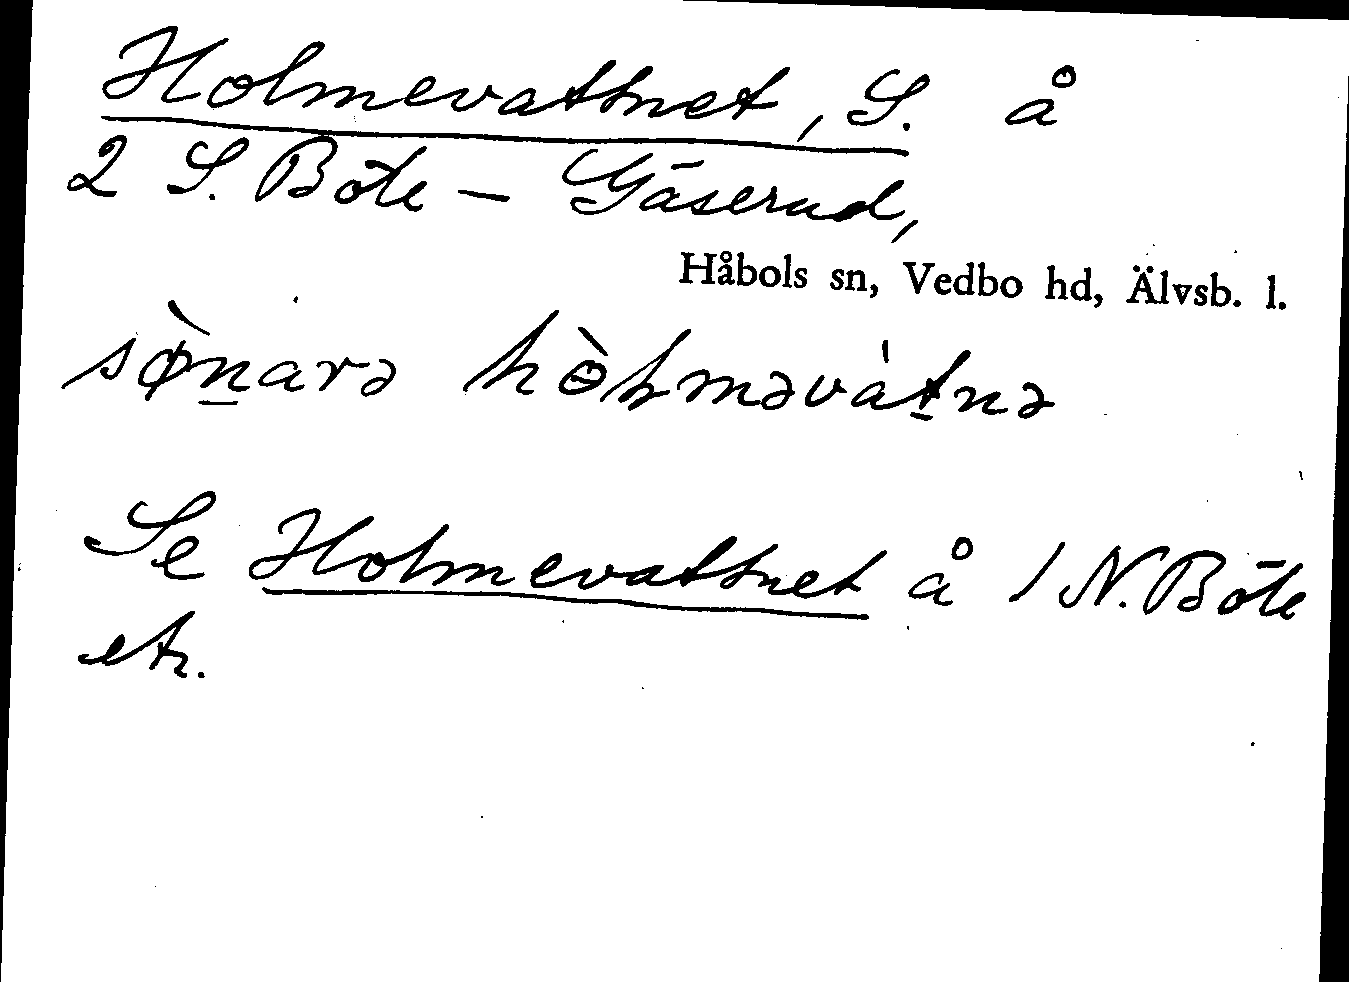 Holmevattnet, S. å
2 S. Böte – Gäserud,
Håbols sn, Vedbo hd, Älvsb. l.
sø̀n̲arə hɵ̀ɫməvàt̲nə
Se Holmevattnet å 1 N. Böte
etc.